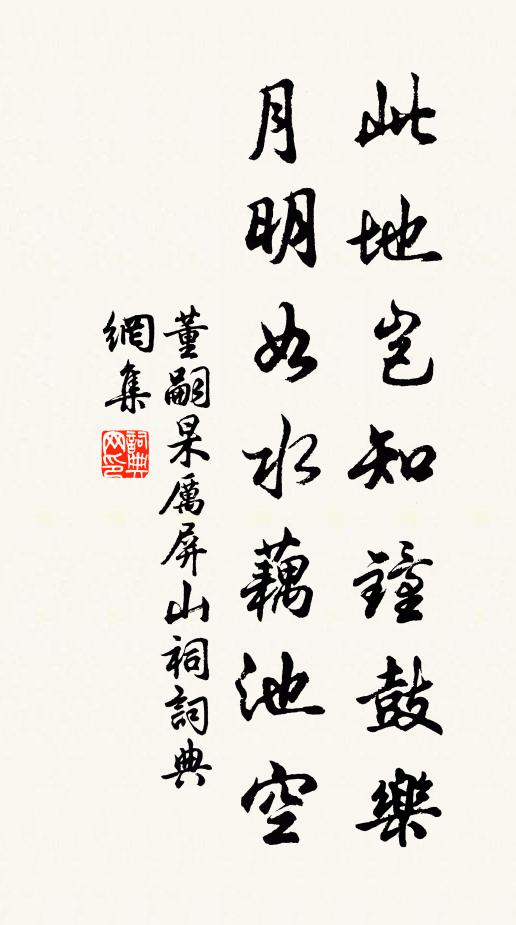 此地岂知鐘鼓樂
月明如水藕池空
董嗣杲厲屏山祠詞典
網集
詞典
网印